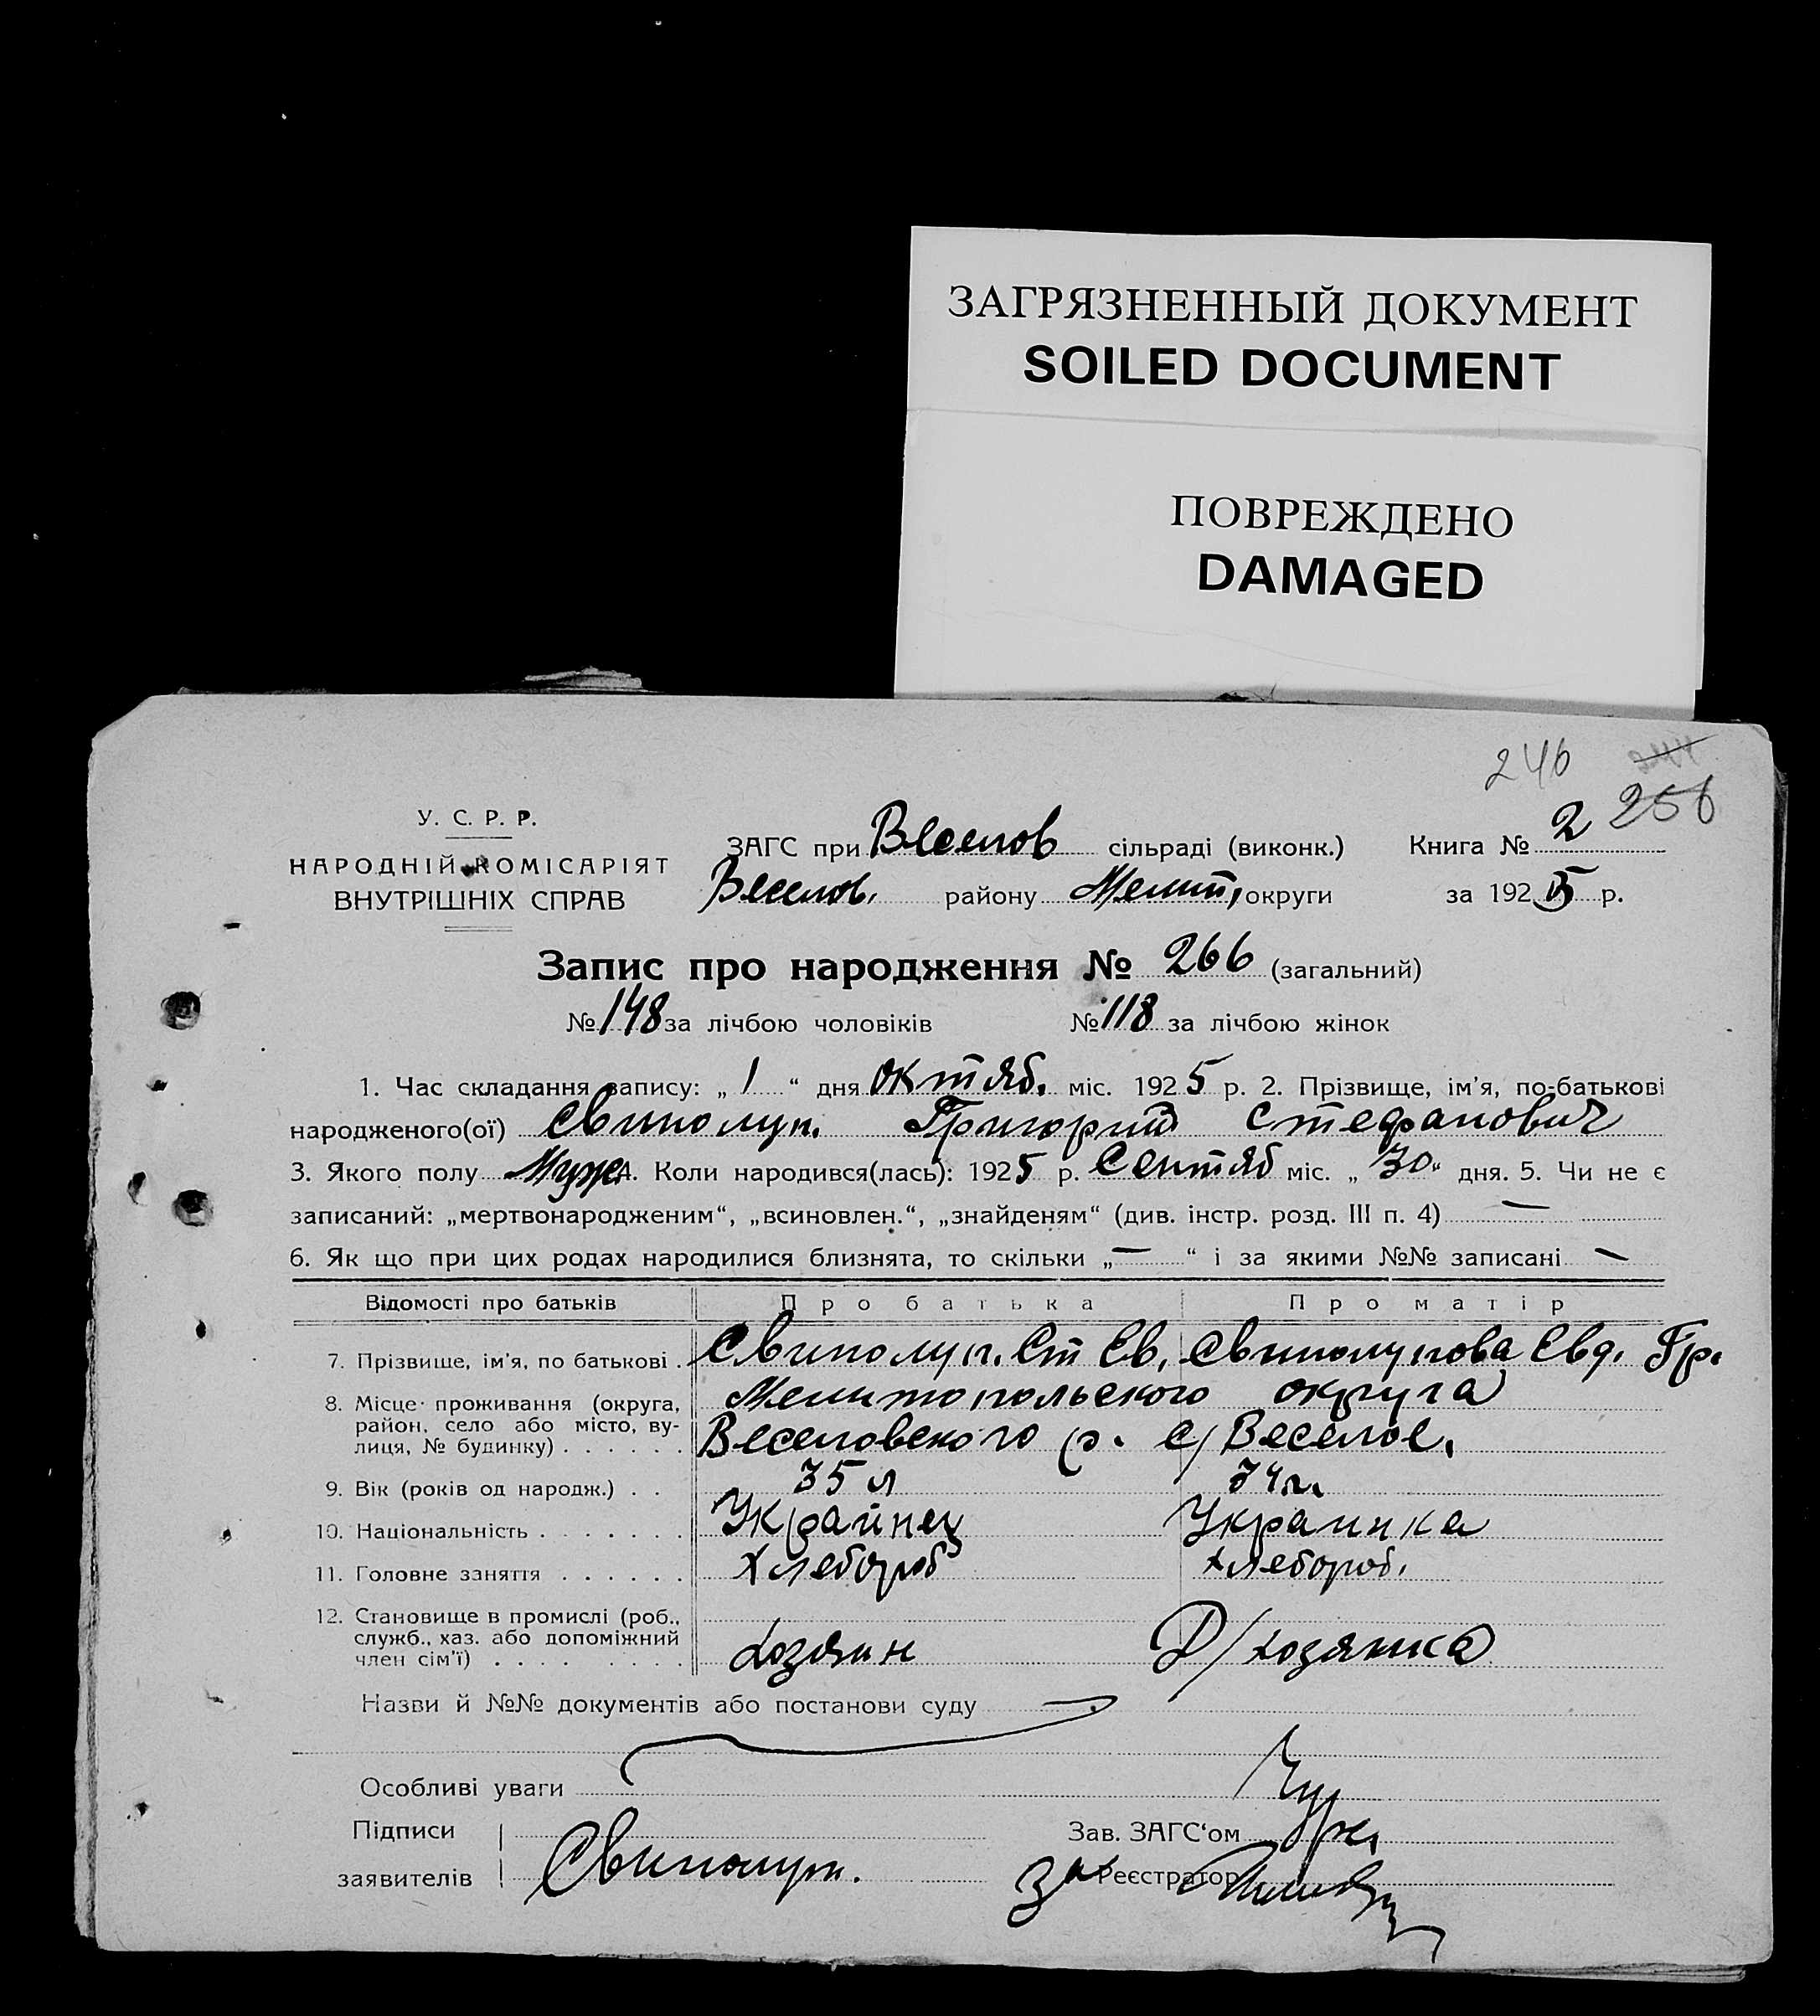 ЗАГРЯЗНЕННЫЙ ДОКУМЕНТ
SOILED DOCUMENT
ПОВРЕЖДЕНО
DAMAGED
246
256
У. С. Р. Р.
НАРОДНІЙ КОМІСАРІЯТ
ВНУТРІШНІХ СПРАВ
ЗАГС при Веселов сільраді (виконк.) Книга № 2
Веселов. району Мелит. округи за 1925 р.
Запис про народження № 266 (загальний)
№ 148 за лічбою чоловіків № 118 за лічбою жінок
1. Час складання запису: „ 1 “ дня октяб. міс. 1925 р. 2. Прізвище, ім'я, по-батькові
народженого(ої) Свинолуп. Григорий Стефанович
3. Якого полу Муж 4. Коли народився(лась): 1925 р. Сентяб міс. „ 30 “ дня. 5. Чи не є
записаний: „мертвонародженим“, „всиновлен.“, „знайденям“ (див. інстр. розд. III п. 4) —
6. Як що при цих родах народилися близнята, то скільки „ — “ і за якими №№ записані —
Відомості про батьків Про батька Про матір
7. Прізвище, ім'я, по батькові . Свинолуп. Ст Ев. Свинолупова Евд. Гр.
8. Місце проживання (округа, Мелитопольского округа
район, село або місто, ву-
лиця, № будинку) . . . . . . Веселовского р. с/Веселое.
9. Вік (років од народж.) . . 35 л 34 л.
10. Національність . . . . . . . Украйнец Украинка
11. Головне заняття . . . . . . Хлебороб хлебороб.
12. Становище в промислі (роб.,
служб., хаз. або допоміжний
член сім'ї) . . . . . . . . Хозяин Д/хозяйка
Назви й №№ документів або постанови суду
Особливі уваги
Підписи
заявителів Свинолуп.
Зав. ЗАГС'ом
За Реєстратор